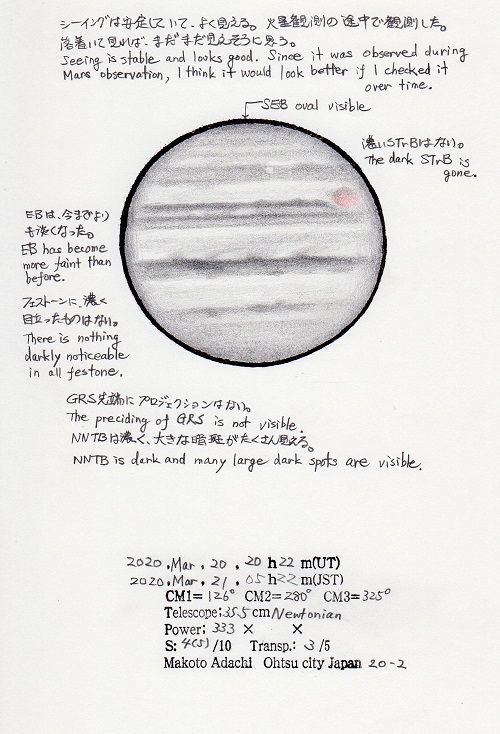 シーイングは安定していて、よく見える。火星観測の途中で観測した。
落着いて見れば、まだまだ見えそうに思う。
Seeing is stable and looks good. Since it was observed during
Mars observation, I think it would look better if I checked it
over time.
SEB oval visible
濃いSTrBはない。
The dark STrB is
gone.
EBは、今までより
も淡くなった。
EB has become
more faint than
before.
フェストーンに、濃く
目立ったものはない。
There is nothing
darkly noticeable
in all festone.
GRS先端にプロジェクションはない。
The preciding of GRS is not visible.
NNTBは濃く、大きな暗斑がたくさん見える。
NNTB is dark and many large dark spots are visible.
2020.Mar.20.20 h22 m(UT)
2020.Mar.21.05 h22 m(JST)
CM1=126° CM2=280° CM3=325°
Telescope:35.5cm Newtonian
Power: 333 × ×
S: 4(5)/10 Transp.: 3/5
Makoto Adachi Ohtsu city Japan 20-2